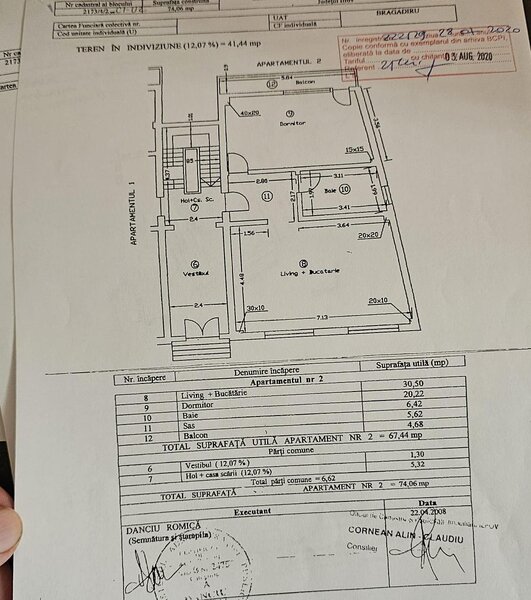 Nr cadastral al blocului
2173/4/2
74,06 mp
Județul Ilfov
Cartea Funciară colectivă nr.
UAT
BRAGADIRU
Cod unitate individuală (U)
CF individuală
TEREN ÎN INDIVIZIUNE (12,07 %) = 41,44 mp
Nr. înregistr
Copie conformă cu exemplarul din arhiva BCPI,
eliberată la data de
Tariful
cu chitanț
03. AUG. 2020
Referent
APARTAMENTUL 2
5.84
12
Balcon
40x20
9
Dormitor
15x15
3.56
APARTAMENTUL 1
4.37
85
Hol+Cs. Sc.
7
2.4
2.86
11
2.17
3.11
Baie 10
1.69
3.41
1.56
3.64
20x20
6
Vestibul
2.4
4.48
8
Living + Bucatarie
30x10
20x10
7.13
Nr. încăpere
Denumire încăpere
Suprafața utilă (mp)
Apartamentul nr 2
8 Living + Bucătărie 30,50
9 Dormitor 20,22
10 Baie 6,42
11 Sas 5,62
12 Balcon 4,68
TOTAL SUPRAFAȚĂ UTILĂ APARTAMENT NR 2 = 67,44 mp
Părți comune
6 Vestibul (12,07 %) 1,30
7 Hol + casa scării (12,07 %) 5,32
Total părți comune = 6,62
TOTAL SUPRAFAȚĂ APARTAMENT NR 2 = 74,06 mp
Executant
Data
22.04.2008
DANCIU ROMICĂ
(Semnătura și ștampila)
CORNEAN ALIN - CLAUDIU
Consilier